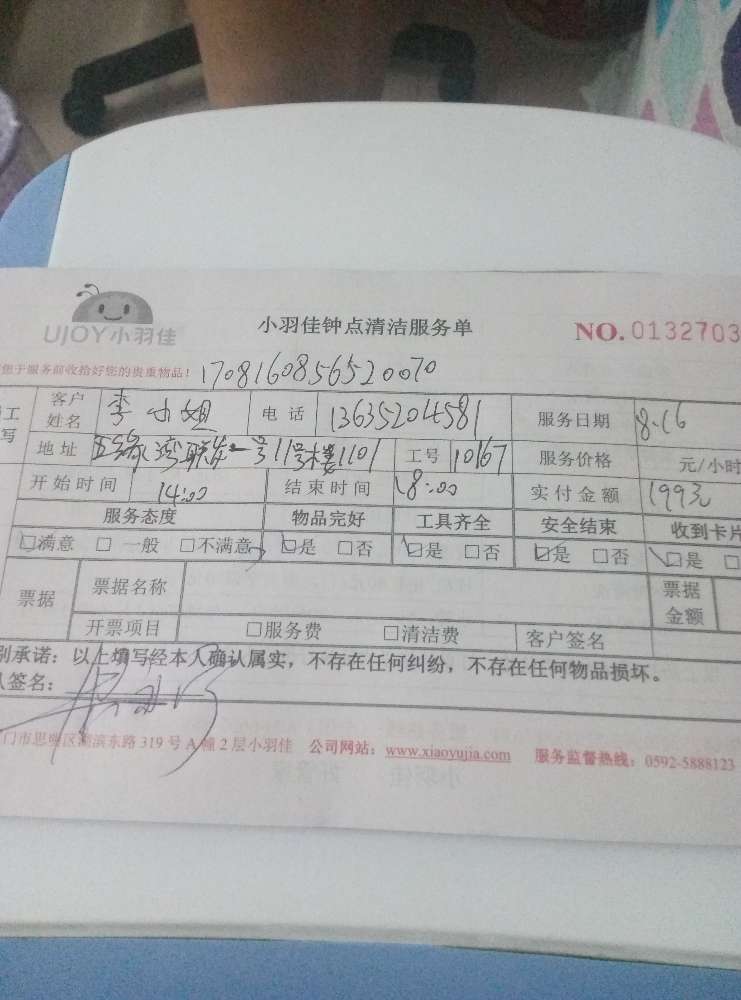 UJOY小羽佳 小羽佳钟点清洁服务单 NO. 0132703
您于服务前收拾好您的贵重物品! 1708160856520070
工 客户姓名 李小姐 电话 13635204581 服务日期 8.16
写 地址 五缘湾联发一号11号楼1101 工号 10167 服务价格 元/小时
开始时间 14:00 结束时间 18:00 实付金额 199元
服务态度 物品完好 工具齐全 安全结束 收到卡片
□满意 □一般 □不满意 □是 □否 □是 □否 □是 □否 □是 □
票据 票据名称 票据金额
开票项目 □服务费 □清洁费 客户签名
别承诺：以上填写经本人确认属实，不存在任何纠纷，不存在任何物品损坏。
人签名：
门市思明区湖滨东路 319 号 A 幢 2 层小羽佳 公司网站：www.xiaoyujia.com 服务监督热线：0592-5888123